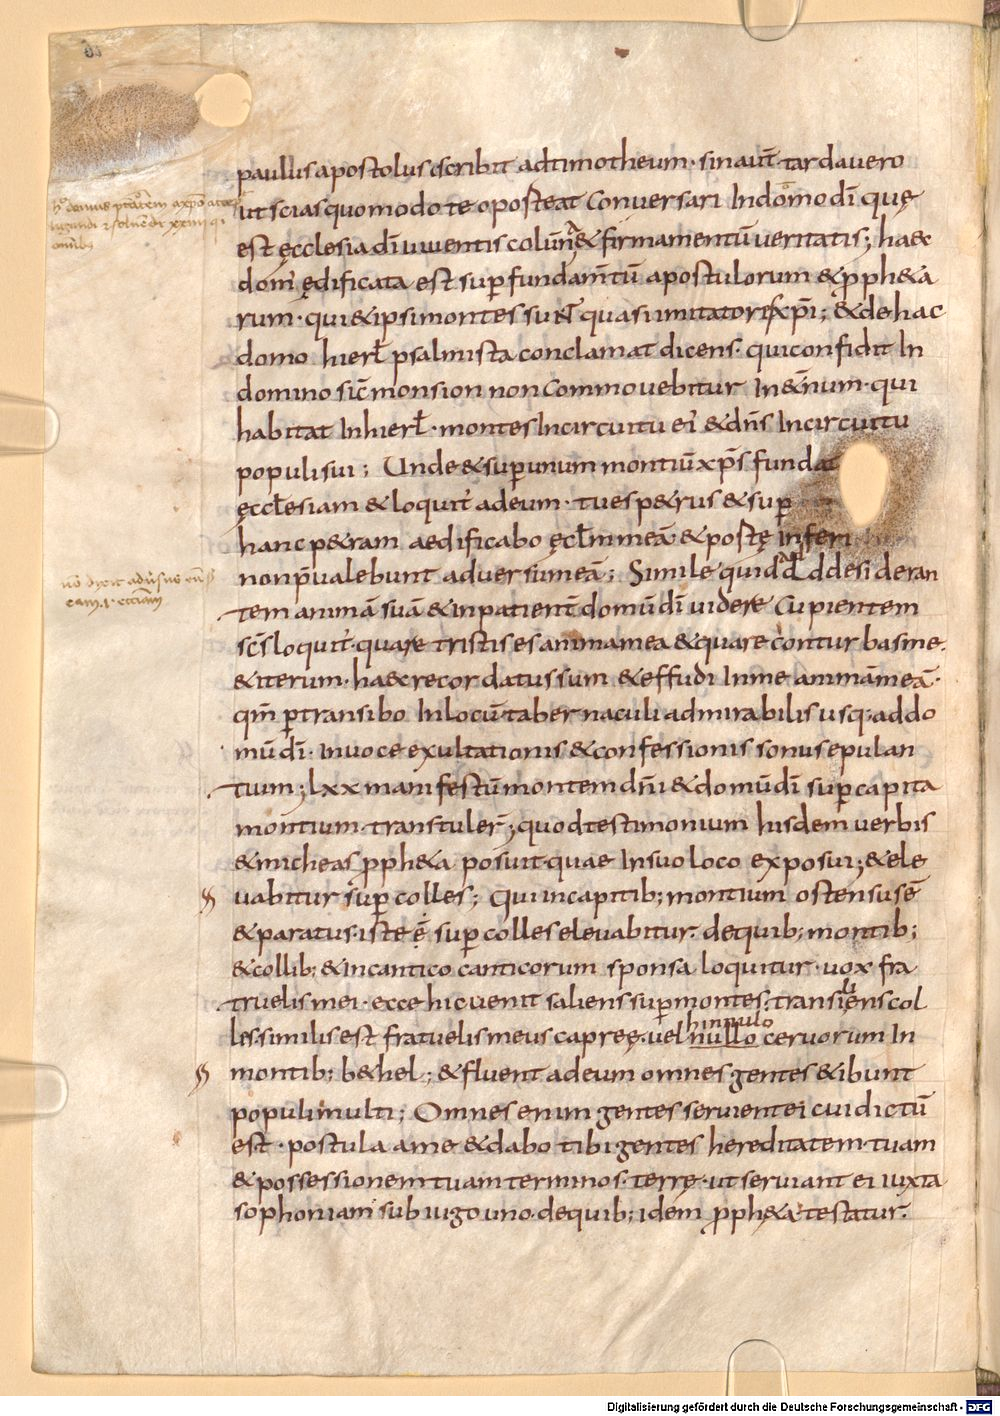 paulus apostolus scribit ad timotheum · sin aut̄ tardavero
ut scias quomodo te oporteat conversari in domo dī quę
est ęcclesia dī viventis colūna & firmamentū veritatis; haec
dom' ędificata est sup fundam̄tū apostulorum & pph&a
rum · qui & ipsi montes sunt quasi imitatores xp̄i; & de hac
domo hierł psalmista conclamat dicens · qui confidit in
domino sic̄ mons ion non commovebitur in &̄num · qui
habitat in hierł · montes in circuitu ei' & dn̄s in circuitu
populi sui; Unde & sup unum montiū xp̄s fundat
ęccłesiam & loquit' ad eum · tu es p&rus & sup
hanc p&ram aedificabo ęcłm meā & portę inferi
non p̄valebunt adversum eā; Simile quid ad dd desideran
tem animā suā & inpatient̄ domū dī videre cupientem
sc̄s loquit' · quare tristis es anima mea & quare conturbas me ·
& iterum · haec recordatus sum & effudi in me animā meā ·
qm̄ ptransibo in locū tabernaculi admirabilis usq; ad do
mū dī · in voce exultationis & confessionis sonus epulan
tium; lxx manifestū montem dn̄i & domū dī sup capita
montium · transtuler̄; quod testimonium hisdem verbis
& micheas pph&a posuit quae in suo loco exposui; & ele
vabitur sup colles; Qui in capitib; montium ostensus ē
& paratus · iste ē sup colles elevabitur · de quib; montib;
& collib; & in cantico canticorum sponsa loquitur · vox fra
truelis mei · ecce hic venit saliens sup montes · transiliens col
les · similis est fratuelis meus capreę · vel nullo cervorum in
hinnulo
montib; b&hel; & fluent ad eum omnes gentes & ibunt
populi multi; Omnes enim gentes servient ei cui dictū
est · postula a me & dabo tibi gentes hereditatem tuam
& possessionem tuam terminos · terrę · ut serviant ei iuxta
sophoniam sub iugo uno · de quib; idem pph&a testatur ·